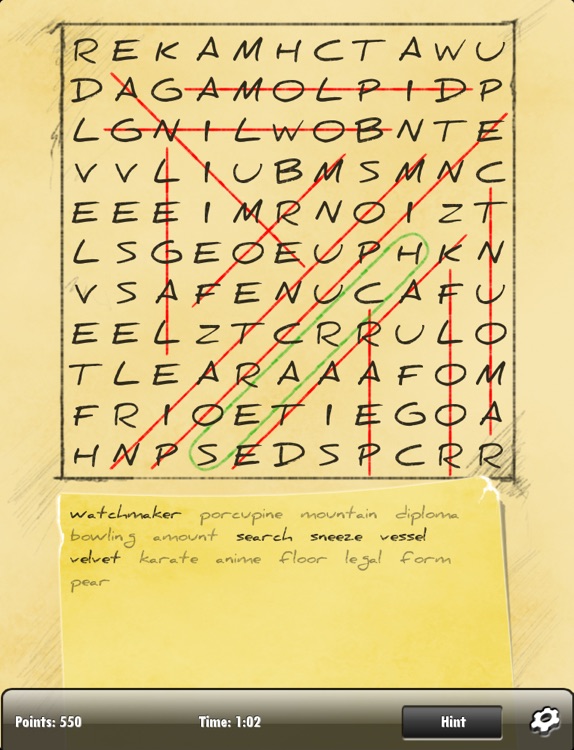 R E K A M H C T A W U
D A G A M O L P I D P
L G N I L W O B N T E
V V L I U B M S M N C
E E E I M R N O I Z T
L S G E O E U P H K N
V S A F E N U C A F U
E E L Z T C R R U L O
T L E A R A A A F O M
F R I O E T I E G O A
H N P S E D S P C R R
watchmaker porcupine mountain diploma
bowling amount search sneeze vessel
velvet karate anime floor legal form
pear
Points: 550 Time: 1:02 Hint